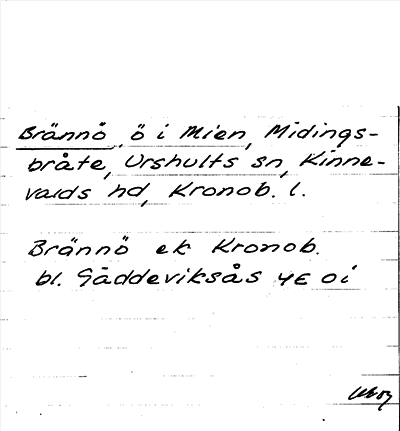 Brännö, ö i Mien, Midings-
bråte, Urshults sn, Kinne-
valds hd, Kronob. l.
Brännö ek Kronob.
bl. Gäddeviksås 4E 0i